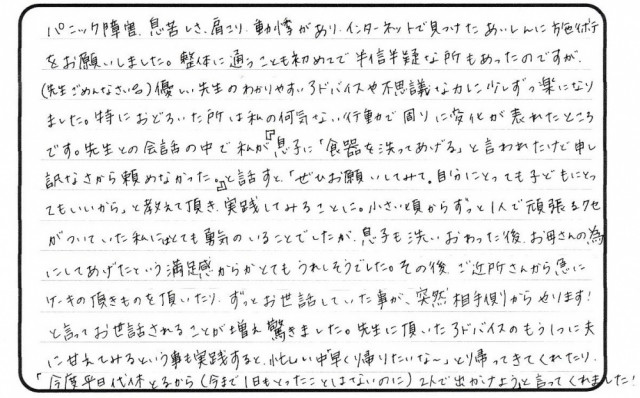 パニック障害、息苦しさ、肩こり、動悸があり、インターネットで見つけたあいしんに施術
をお願いしました。整体に通うことも初めてで半信半疑な所もあったのですが、
(先生ごめんなさい)優しい先生のわかりやすいアドバイスや不思議な力に少しずつ楽になり
ました。特におどろいた所は私の何気ない行動で周りに変化が表れたところ
です。先生との会話の中で私が『息子に「食器を洗ってあげる」と言われたけど申し
訳なさから頼めなかった。』と話すと、「ぜひお願いしてみて。自分にとっても子どもにとっ
てもいいから」と教えて頂き、実践してみることに。小さい頃からずっと1人で頑張るクセ
がついていた私にはとても勇気のいることでしたが、息子も洗いおわった後、お母さんの為
にしてあげたという満足感からかとてもうれしそうでした。その後、ご近所さんから急に
ケーキの頂きものを頂いたり、ずっとお世話していた事が、突然相手側からやります!
と言ってお世話されることが増え驚きました。先生に頂いたアドバイスのもう1つに夫
に甘えてみるという事も実践すると、忙しい中「早く帰りたいな〜」と帰ってきてくれたり、
「今度平日代休とるから(今まで1日もとったことはないのに)2人で出かけよう」と言ってくれました!